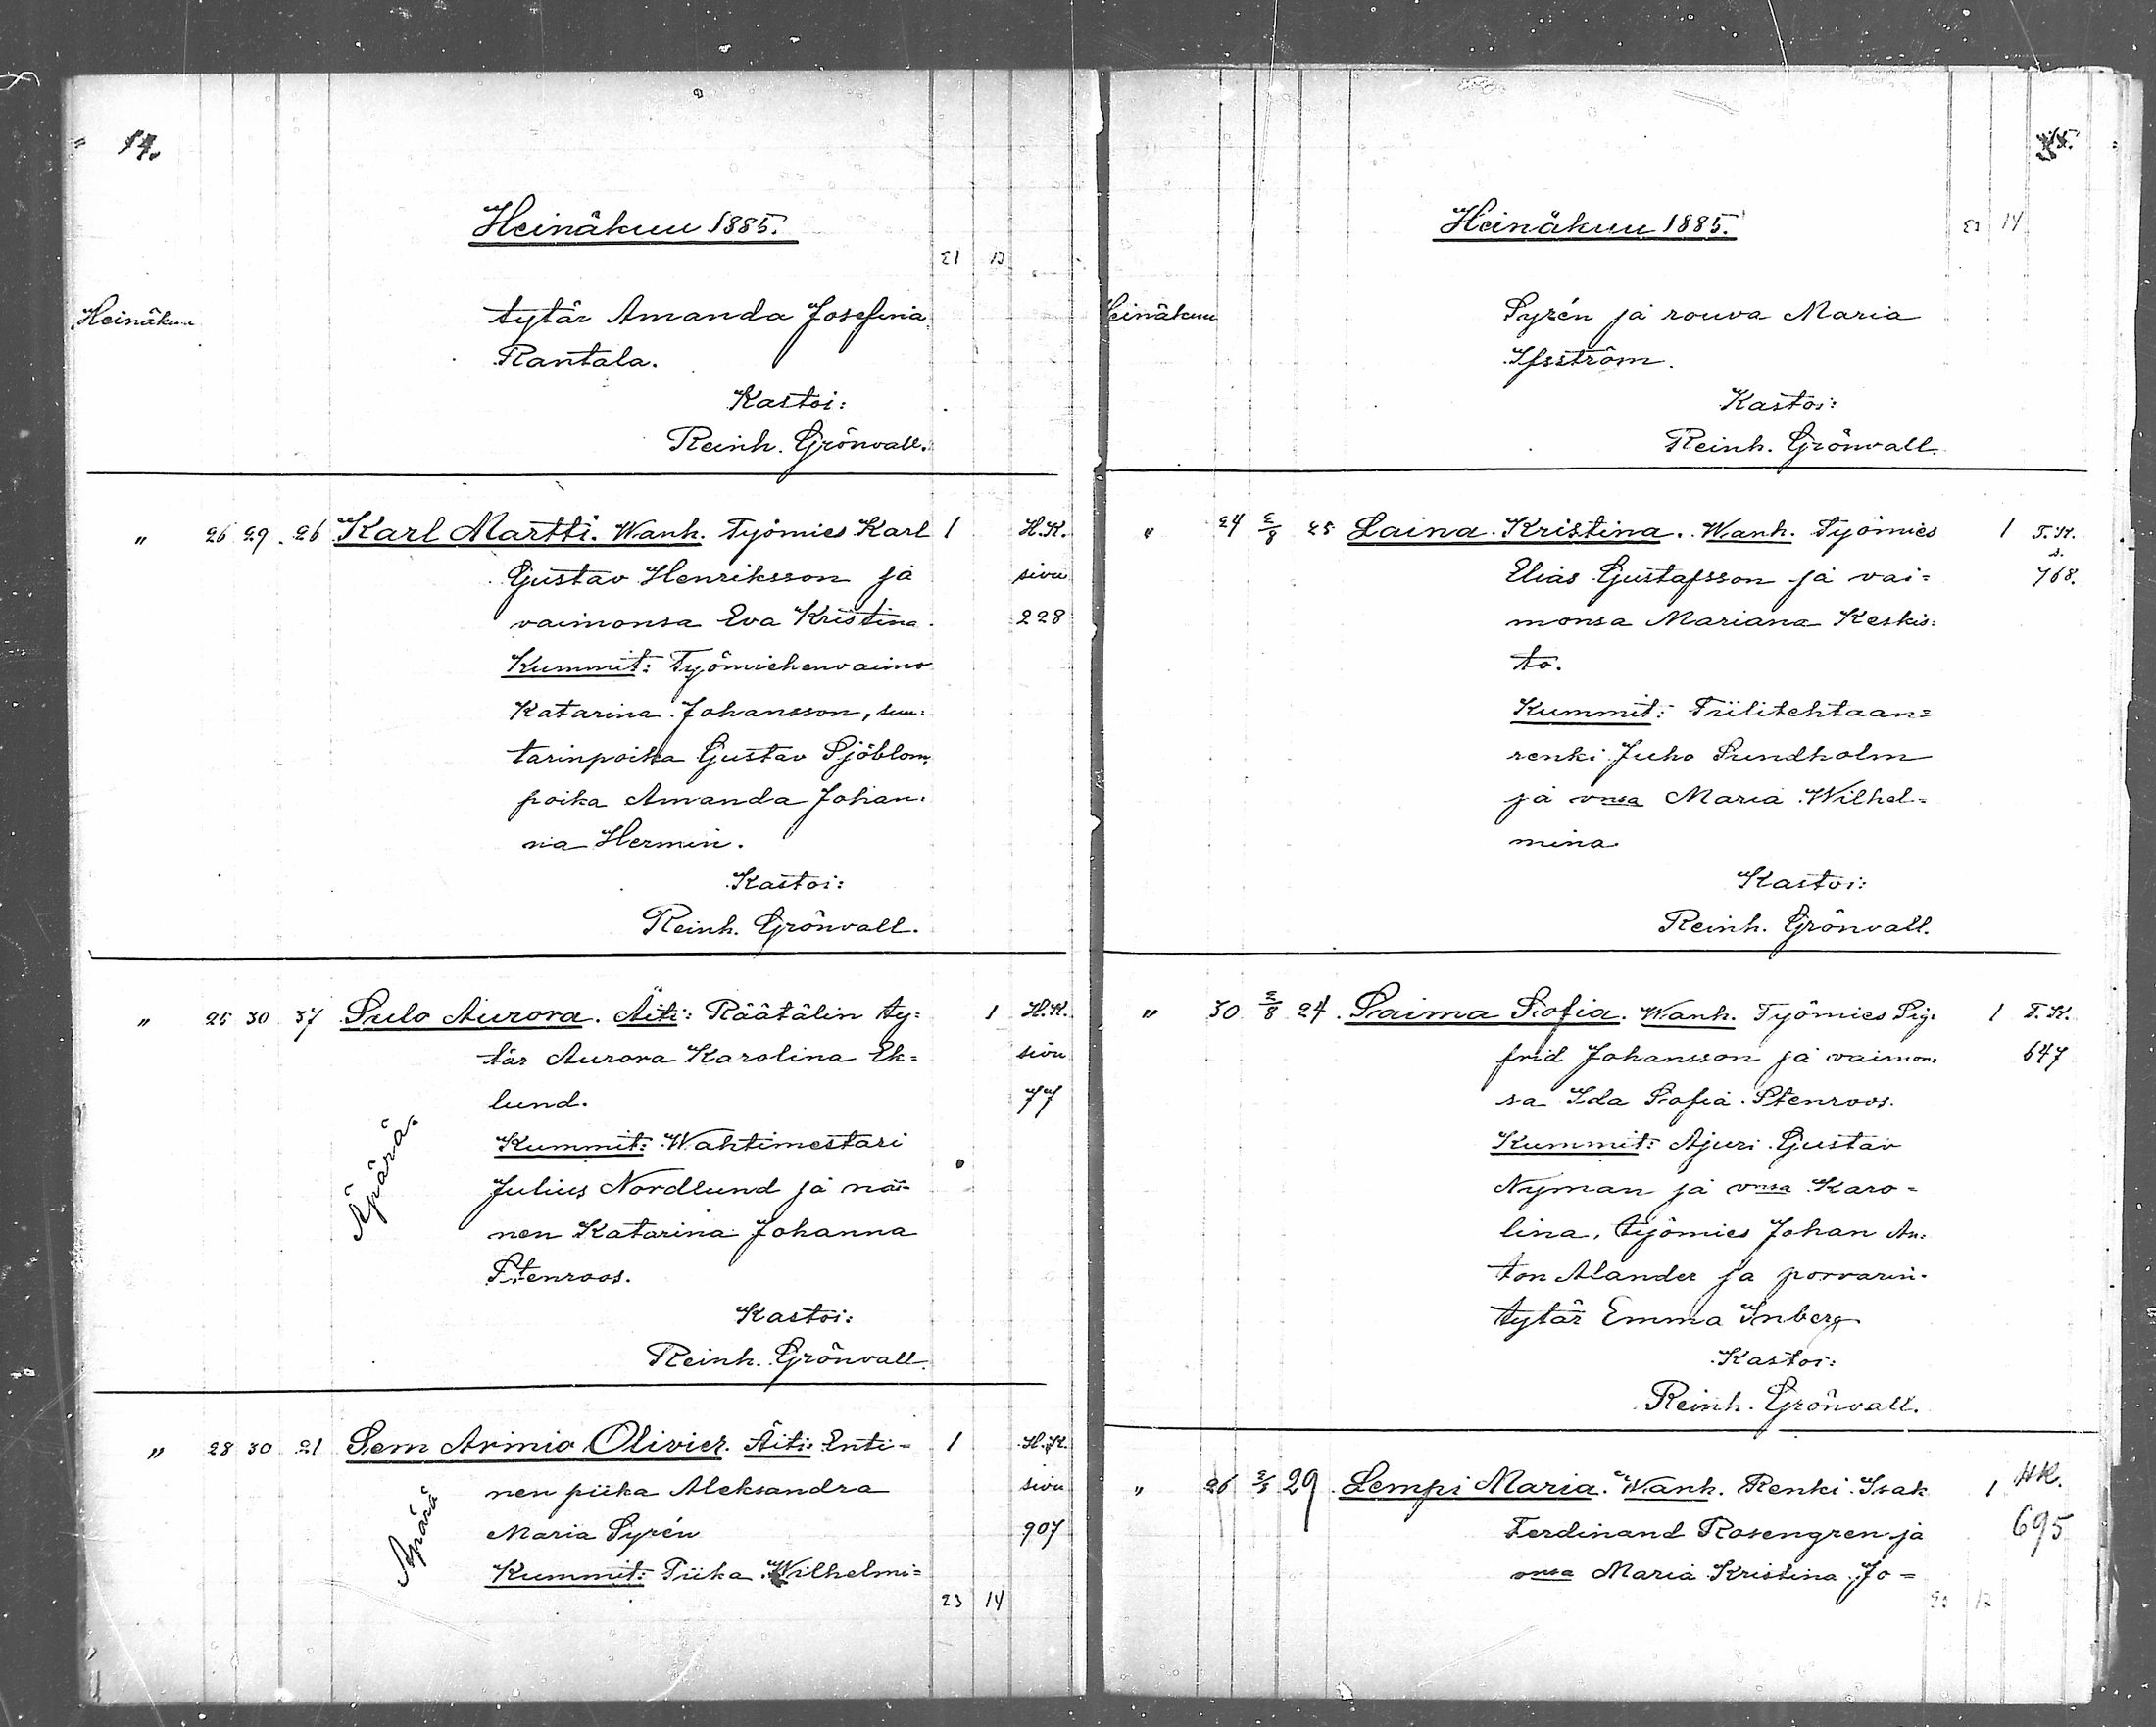 14.
Heinäkuu 1885.
21 13
Heinäkuu tytär Amanda Josefina
Rantala.
Kastoi:
Reinh. Grönvall.
" 26 29 26 Karl Martti. Wanh. Työmies Karl 1 H.K.
Gustav Henriksson ja sivu
vaimonsa Eva Kristina. 228
Kummit: Työmiehenvaimo
Katarina Johansson, suu=
tarinpoika Gustav Sjöblom,
poika Amanda Johan=
na Hermin.
Kastoi:
Reinh. Grönvall.
" 25 30 37 Sulo Aurora. Äiti: Räätälin ty= 1 H.K.
tär Aurora Karolina Ek= sivu
lund. 77
Äpärä.
Kummit: Wahtimestari
Julius Nordlund ja nai=
nen Katarina Johanna
Stenroos.
Kastoi:
Reinh. Grönvall.
" 28 30 21 Sem Armio Olivier. Äiti: Enti= 1 H.K.
nen piika Aleksandra sivu
Maria Syrén 907
Äpärä
Kummit: Piika Wilhelmi=
23 14
Heinäkuu 1885.
23 14
Heinäkuu Syrén ja rouva Maria
Ifsström.
Kastoi:
Reinh. Grönvall.
" 24 2/8 25 Laina Kristina. Wanh. Työmies 1 T.K.
s.
Elias Gustafsson ja vai= 768.
monsa Mariana Keskis=
to.
Kummit: Tiilitehtaan=
renki Juho Sundholm
ja vmsa Maria Wilhel=
mina
Kastoi:
Reinh. Grönvall.
" 30 2/8 24 Saima Sofia. Wanh. Työmies Sig= 1 T.K.
frid Johansson ja vaimon= 647
sa Ida Sofia Stenroos.
Kummit: Ajuri Gustav
Nyman ja vmsa Karo=
lina, työmies Johan An=
ton Alander ja porvarin=
tytär Emma Inberg
Kastoi:
Reinh. Grönvall.
" 26 2/8 29 Lempi Maria. Wanh. Renki Isak 1 HK.
Ferdinand Rosengren ja 695
vmsa Maria Kristina Jo=